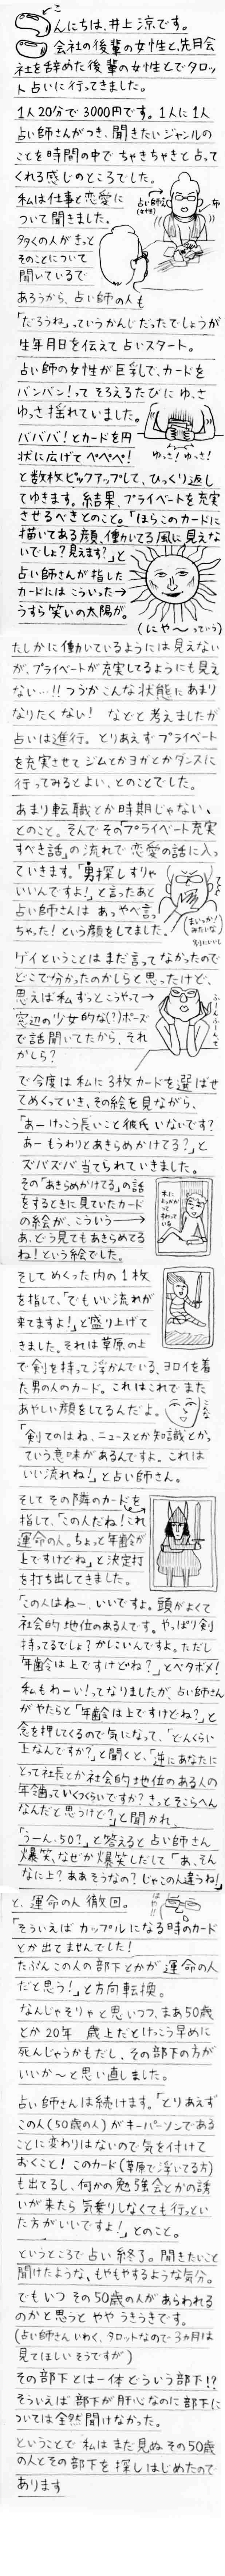 こ
んにちは、井上涼です。
会社の後輩の女性と、先月会
社を辞めた後輩の女性とでタロッ
ト占いに行ってきました。
1人20分で3000円です。1人に1人
占い師さんがつき、聞きたいジャンルの
ことを時間の中でちゃきちゃきと占って
くれる感じのところでした。
私は仕事と恋愛に
ついて聞きました。
占い師さん
(女性)
布
多くの人がきっと
そのことについて
聞いているで
あろうから、占い師の人も
「だろうね」っていうかんじだったでしょうが
生年月日を伝えて占いスタート。
占い師の女性が巨乳で、カードを
バンバン!ってそろえるたびにゆさ
ゆっさ揺れていました。
バババ!とカードを円
状に広げてペペペ!
ゆっさ!ゆっさ!
と数枚ピックアップして、ひっくり返し
てゆきます。結果、プライベートを充実
させるべきとのこと。「ほらこのカードに
描いてある顔、働いてる風に見えな
いでしょ?見えます?」と
占い師さんが指した
カードにはこういった→
うすら笑いの太陽が。
(にや〜っていう)
たしかに働いているようには見えない
が、プライベートが充実してるようにも見え
ない…!!つうかこんな状態にあまり
なりたくない!などと考えましたが
占いは進行。とりあえずプライベート
を充実させてジムとかヨガとかダンスに
行ってみるとよい、とのことでした。
あまり転職とか時期じゃない、
とのこと。そんでその「プライベート充実
すべき話」の流れで恋愛の話に入っ
ていきます。「男探しすりゃ
いいんですよ!」と言ったあと
占い師さんは あっやべ言っ
ちゃった!という顔をしてました。
(まいっか!
みたいな
ゲイということはまだ言ってなかったので
どこで分かったのかしらと思ったけど、
思えば私ずっとこうやって→
窓辺の少女的な(?)ポーズ
で話聞いてたから、それ
かしら?
ふーんふーんて
で今度は私に3枚カードを選ばせ
てめくっていき、その絵を見ながら、
「あーけっこう長いこと彼氏いないです?
あーもうわりとあきらめかけてる?」と
ズバズバ当てられていきました。
その「あきらめかけてる」の話
をするときに見ていたカード
の絵が、こういう→
あ、どう見てもあきらめてる
ね!という絵でした。
木に
よっかか
って
すわって
いる
そしてめくった内の1枚
を指して、「でもいい流れが
来てますよ!」と盛り上げて
きました。それは草原の上
で剣を持って浮かんでいる、ヨロイを着
た男の人のカード。これはこれでまた
あやしい顔をしてるんだよ。
こんな
「剣てのはね、ニュースとか知識とかっ
ていう意味があるんですよ。これは
いい流れね!」と占い師さん。
そしてその隣のカードを
指して、「この人だね!これ
運命の人。ちょっと年齢が
上ですけどね」と決定打
を打ち出してきました。
「この人はねー、いいですよ。頭がよくて
社会的地位のある人です。やっぱり剣
持ってるでしょ?かしこいんですよ。ただし
年齢は上ですけどね?」とベタボメ!
私もわーい!ってなりましたが、占い師さん
がやたらと「年齢は上ですけどね?」と
念を押してくるので気になって、「どんくらい
上なんですか?」と聞くと、「逆にあなたに
とって社長とか社会的地位のある人の
年齢っていくつくらいですか?きっとそこらへん
なんだと思うけど?」と聞かれ、
「うーん、50?」と答えると占い師さん
爆笑、なぜか爆笑しだして「あ、そん
なに上?ああそうなの?じゃこの人違うね!」
と、運命の人撤回。
はやっ!!
「そういえばカップルになる時のカード
とか出てませんでした!
たぶんこの人の部下とかが運命の人
だと思う!」と方向転換。
なんじゃそりゃと思いつつ、まあ50歳
とか20年 歳上だとけっこう早めに
死んじゃうかもだし、その部下の方が
いいか〜と思い直しました。
占い師さんは続けます。「とりあえず
この人(50歳の人)がキーパーソンである
ことに変わりはないので気を付けて
おくこと!このカード(草原で浮いてる方)
も出てるし、何かの勉強会とかの誘
いが来たら気乗りしなくても行っとい
た方がいいですよ!」とのこと。
というところで占い終了。聞きたいこと
聞けたような、もやもやするような気分。
でもいつその50歳の人があらわれる
のかと思うとややうきうきです。
(占い師さんいわく、タロットなので3ヵ月は
見てほしいそうですが)
その部下とは一体どういう部下!?
そういえば部下が肝心なのに部下に
ついては全然聞けなかった。
ということで私はまだ見ぬその50歳
の人とその部下を探しはじめたので
あります